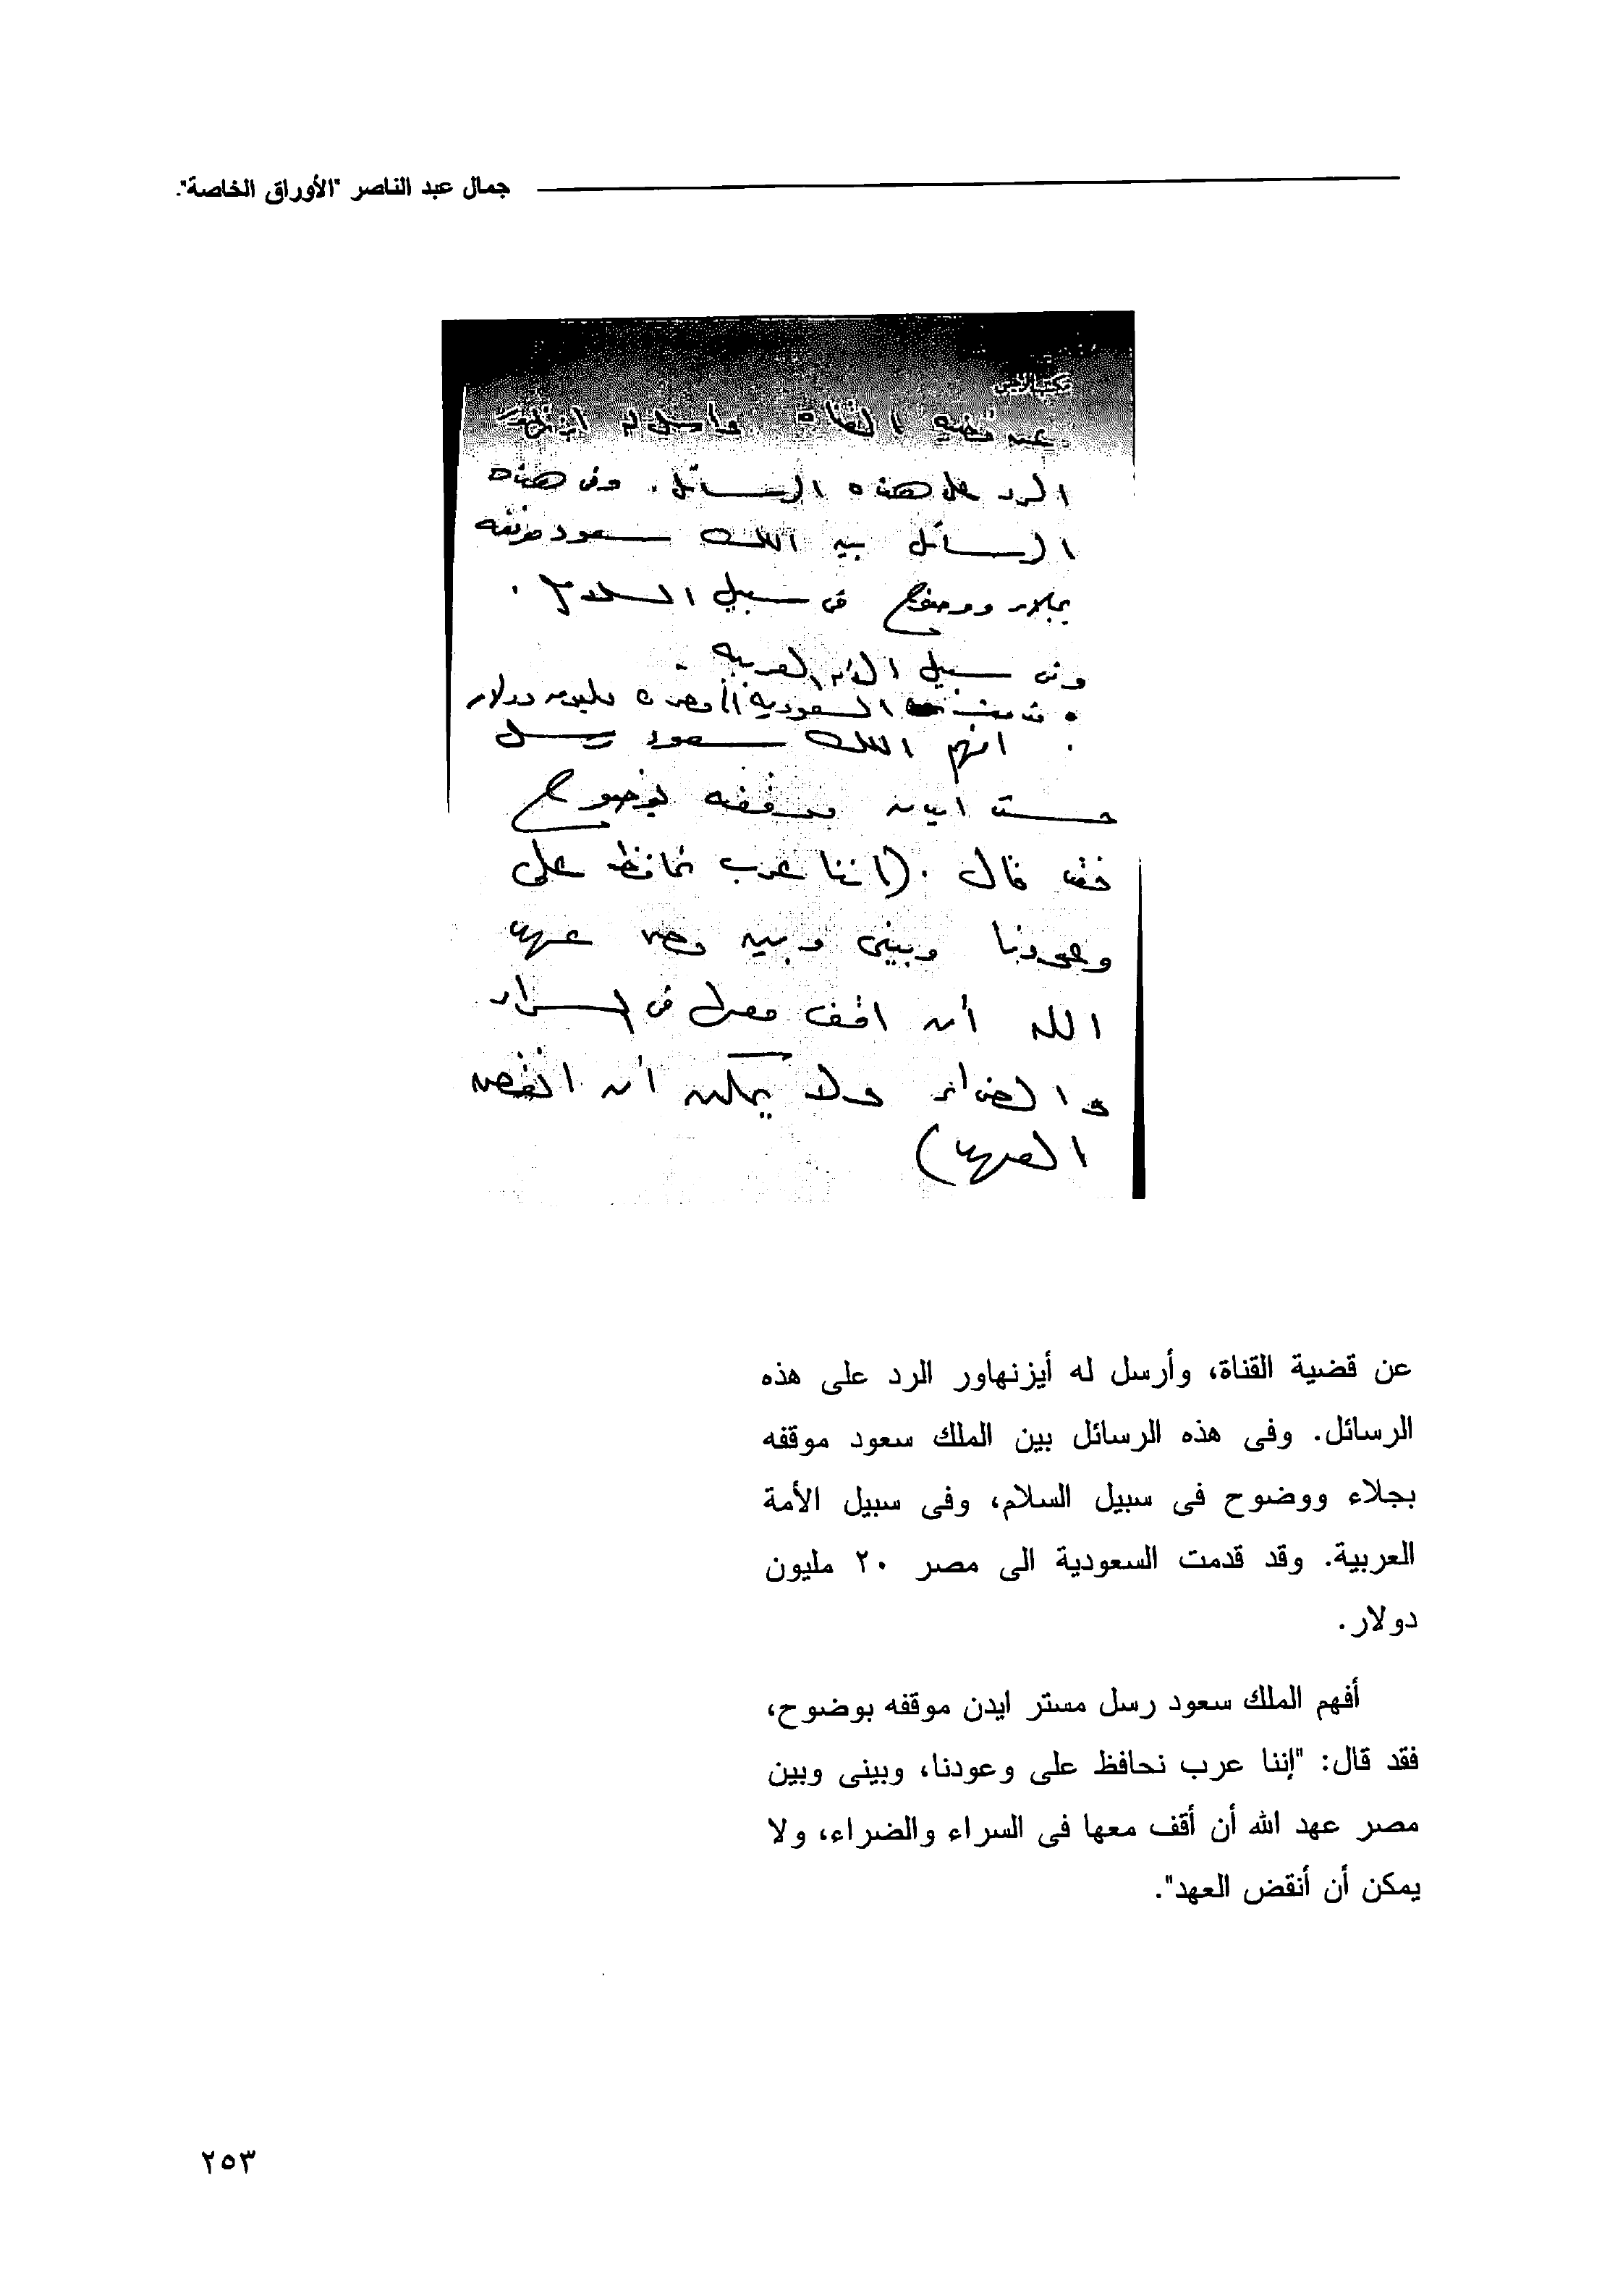 جمال عبد الناصر "الأوراق الخاصة".
مكتب الرئيس
عن قضيه القناه وارسل له ايزنهاور
الرد على هذه الرسائل . وفى هذه
الرسائل بين الملك سعود موقفه
بجلاء ووضوح فى سبيل السلام .
وفى سبيل الأمه العربيه .
السعوديه مصر مليون دولار
. افهم الملك سعود رسل
مستر ايدن موقفه بوضوح
فقد قال . (اننا عرب نحافظ على
وعودنا وبينى وبين مصر عهد
الله أن اقف معها فى السراء
والضراء ولا يمكن أن انقض
العهد)
عن قضية القناة، وأرسل له أيزنهاور الرد على هذه
الرسائل. وفى هذه الرسائل بين الملك سعود موقفه
بجلاء ووضوح فى سبيل السلام، وفى سبيل الأمة
العربية. وقد قدمت السعودية الى مصر ٢٠ مليون
دولار.
أفهم الملك سعود رسل مستر ايدن موقفه بوضوح،
فقد قال: "إننا عرب نحافظ على وعودنا، وبينى وبين
مصر عهد الله أن أقف معها فى السراء والضراء، ولا
يمكن أن أنقض العهد".
٢٥٣